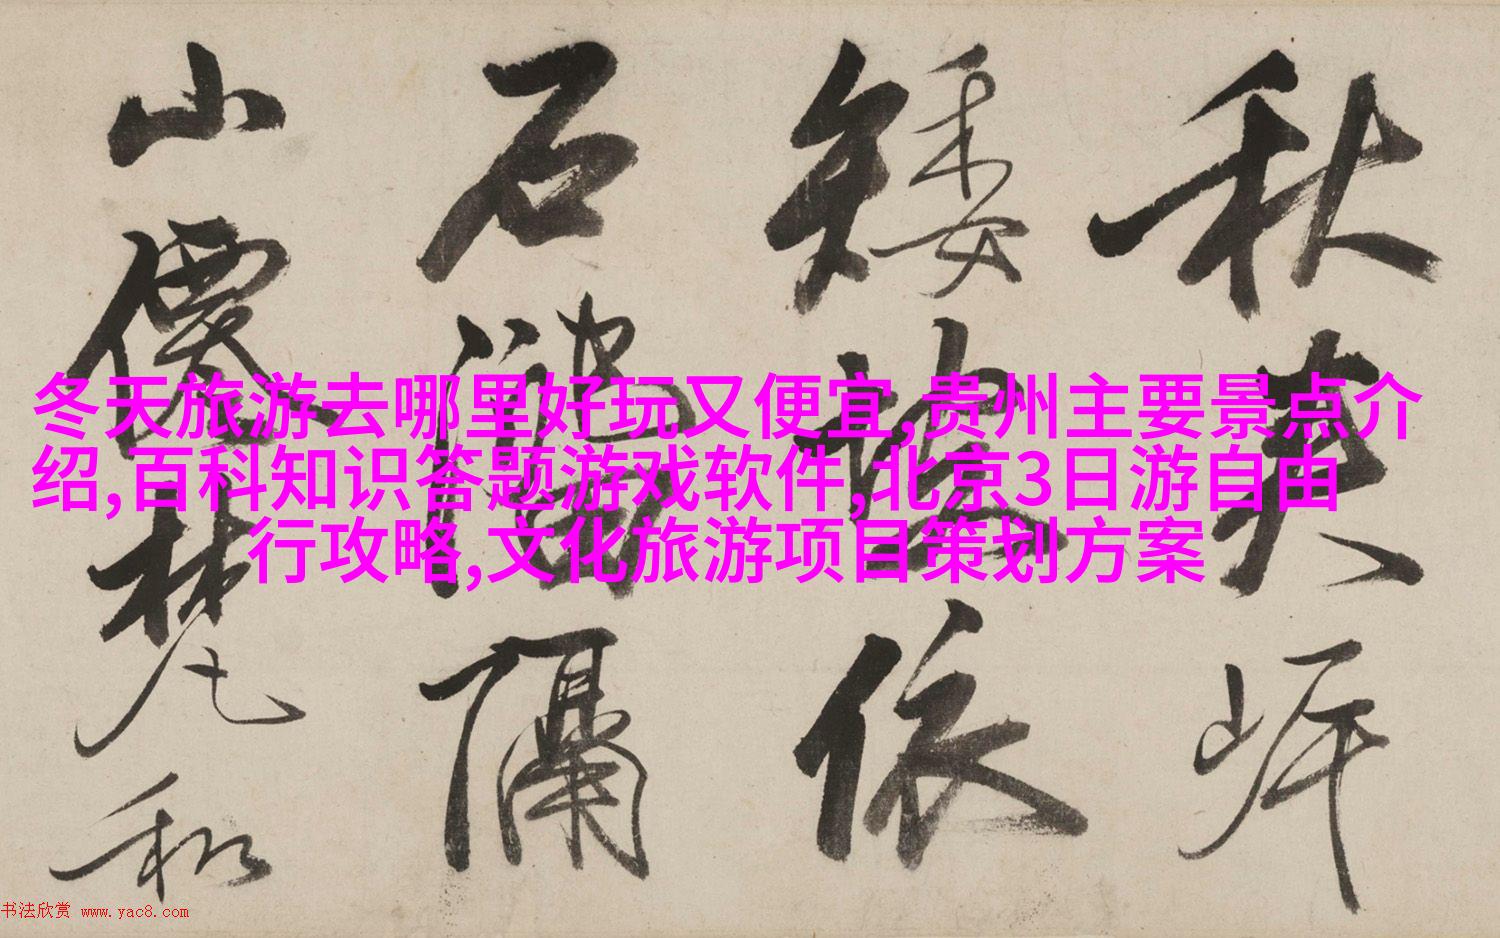 冬天旅游去哪里好玩又便宜,贵州主要景点介
绍,百科知识答题游戏软件,北京3日游自由
行攻略,文化旅游项目策划方案
秋
矮 依
石 隔
山 梵和
书法欣赏 www.yac8.com